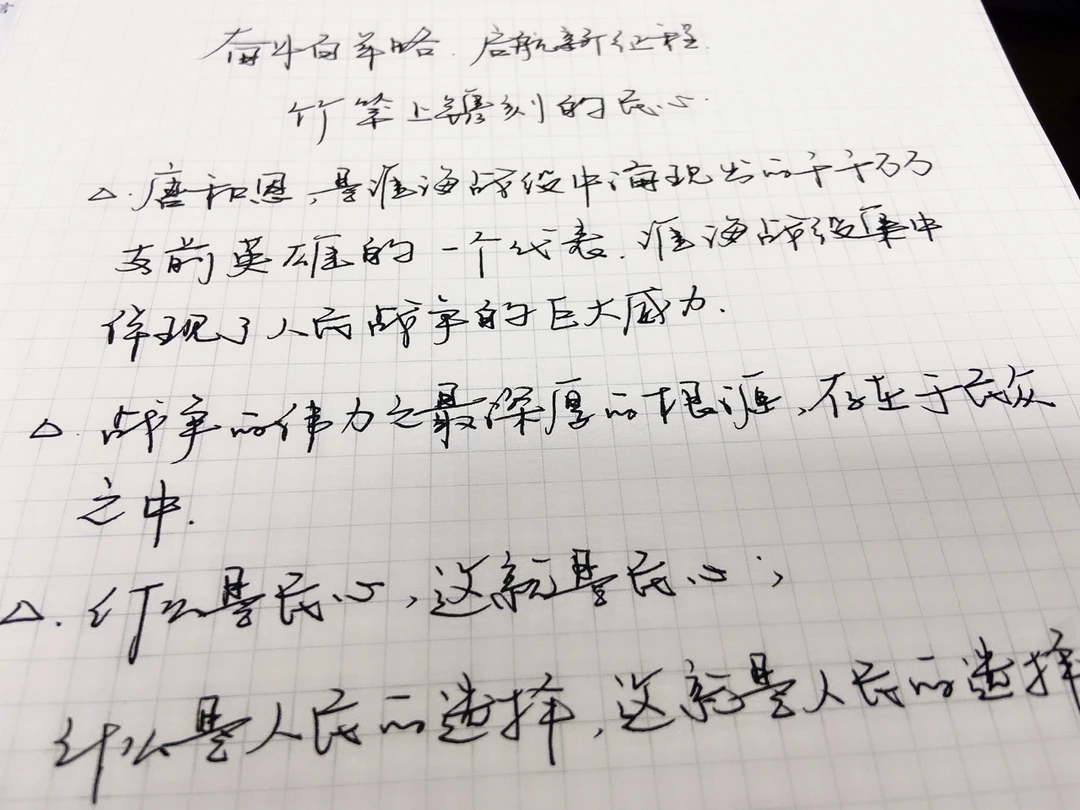 奋斗百年路 启航新征程
竹竿上镌刻的民心
△.唐和恩,是淮海战役中涌现出的千千万万
支前英雄的一个代表.淮海战役集中
体现了人民战争的巨大威力.
△.战争的伟力之最深厚的根源,存在于民众
之中.
△.什么是民心,这就是民心;
什么是人民的选择,这就是人民的选择